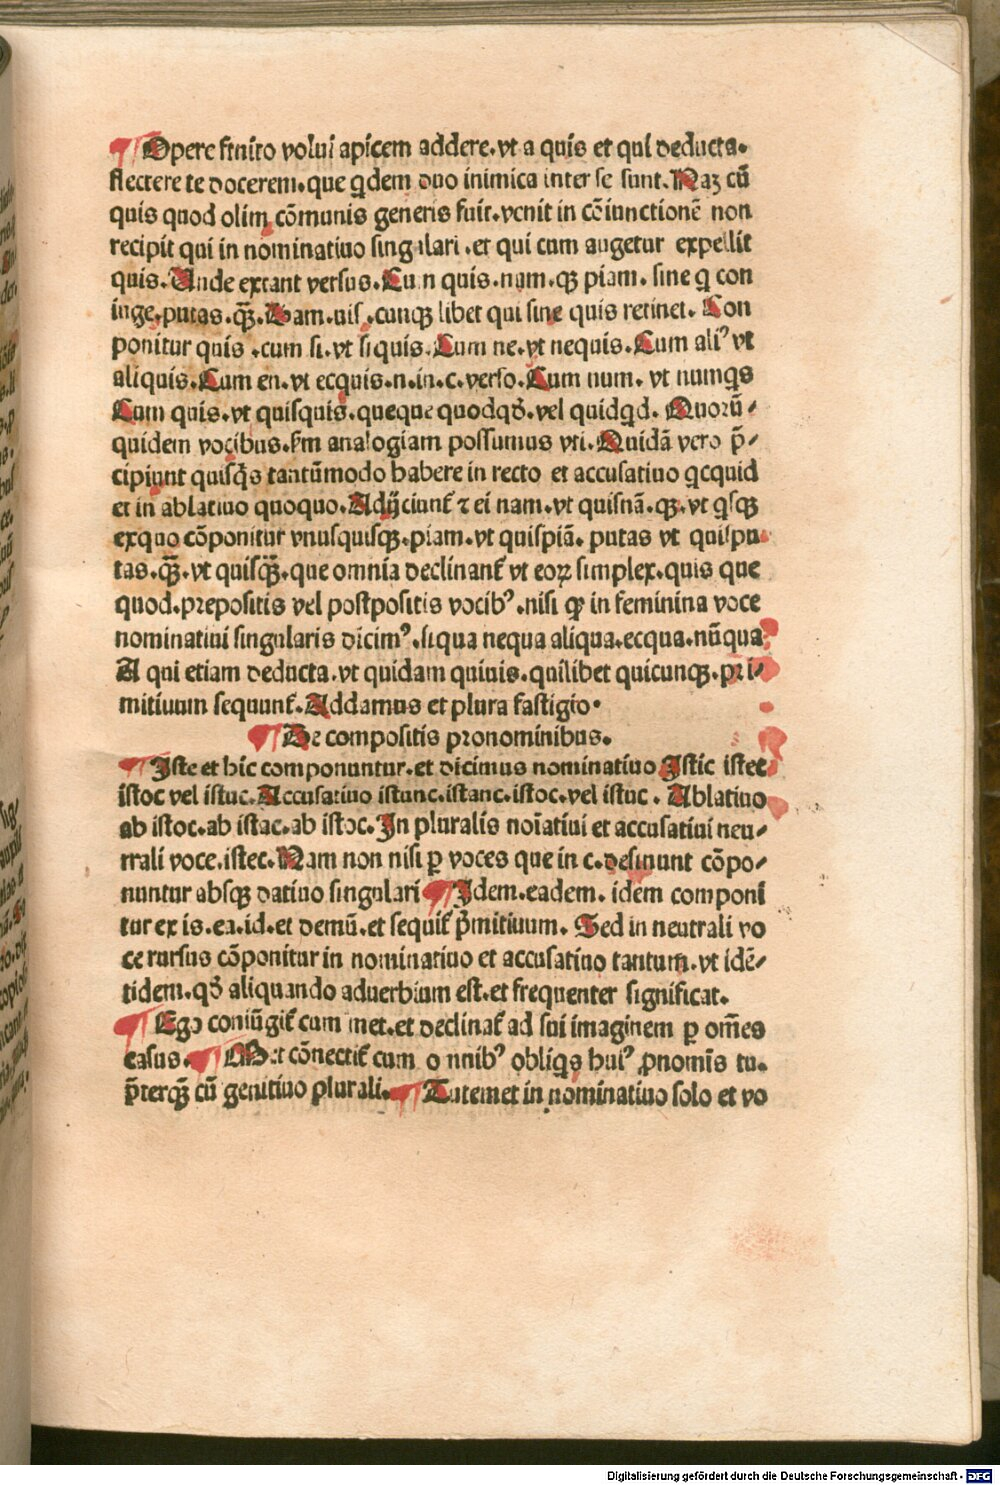 ¶ Opere finito volui apicem addere.vt a quis et qui deducta.
flectere te docerem.que qdem duo inimica inter se sunt.Naʒ cū
quis quod olim cōmunis generis fuit.venit in cōiunctionē non
recipit qui in nominatiuo singulari.et qui cum augetur expellit
quis.Unde extant versus.Cum quis.nam.qꝫ piam. sine q con
iunge.putas.qꝫ̄.Dam.uis.cunqꝫ libet qui sine quis retinet. Con
ponitur quis .cum si.vt siquis.Cum ne.vt nequis.Cum ali᾽ vt
aliquis.Cum en.vt ecquis.n.in.c.verso.Cum num. vt numqs
Cum quis.vt quisquis.queque quodqđ.vel quidqd. Quorū/
quidem vocibus.ẜm analogiam possumus vti.Quidā vero p̄/
cipiunt quisq̄s tantūmodo habere in recto et accusatiuo qcquid
et in ablatiuo quoquo.Adijciunt̄ ⁊ ei nam.vt quisnā.qꝫ.vt qsqꝫ
exquo cōponitur vnusquisqꝫ.piam.vt quispiā. putas vt quispu
tas.qꝫ̄.vt quisqꝫ̄.que omnia declinant̄ vt eoꝝ simplex.quis que
quod.prepositis vel postpositis vocib᾽.nisi ꝙ in feminina voce
nominatiui singularis dicim᾽.siqua nequa aliqua.ecqua.nūqua
A qui etiam deducta.vt quidam quiuis.quilibet quicunqꝫ.pri/
mitiuum sequunt̄.Addamus et plura fastigio.
¶ De compositis pronominibus.
¶ Iste et hic componuntur.et dicimus nominatiuo Istic istec
istoc vel istuc.Accusatiuo istunc.istanc.istoc.vel istuc . Ablatiuo
ab istoc.ab istac.ab istoc.In pluralis noīatiui et accusatiui neu/
trali voce.istec.Nam non nisi ꝑ voces que in c.desinunt cōpo/
nuntur absqꝫ datiuo singulari ¶ Idem.eadem. idem componi
tur ex is.ea.id.et demū.et sequit̄ p̄mitiuum. Sed in neutrali vo
ce rursus cōponitur in nominatiuo et accusatiuo tantum.vt idē/
tidem.qđ aliquando aduerbium est.et frequenter significat.
¶ Ego coniūgit̄ cum met.et declinat̄ ad sui imaginem ꝑ om̄es
casus. ¶ Met cōnectit̄ cum omnib᾽ obliqs hui᾽ ꝓnom̄is tu.
p̄terqꝫ̄ cū genitiuo plurali. ¶ Tutemet in nominatiuo solo et vo
Digitalisierung gefördert durch die Deutsche Forschungsgemeinschaft - DFG